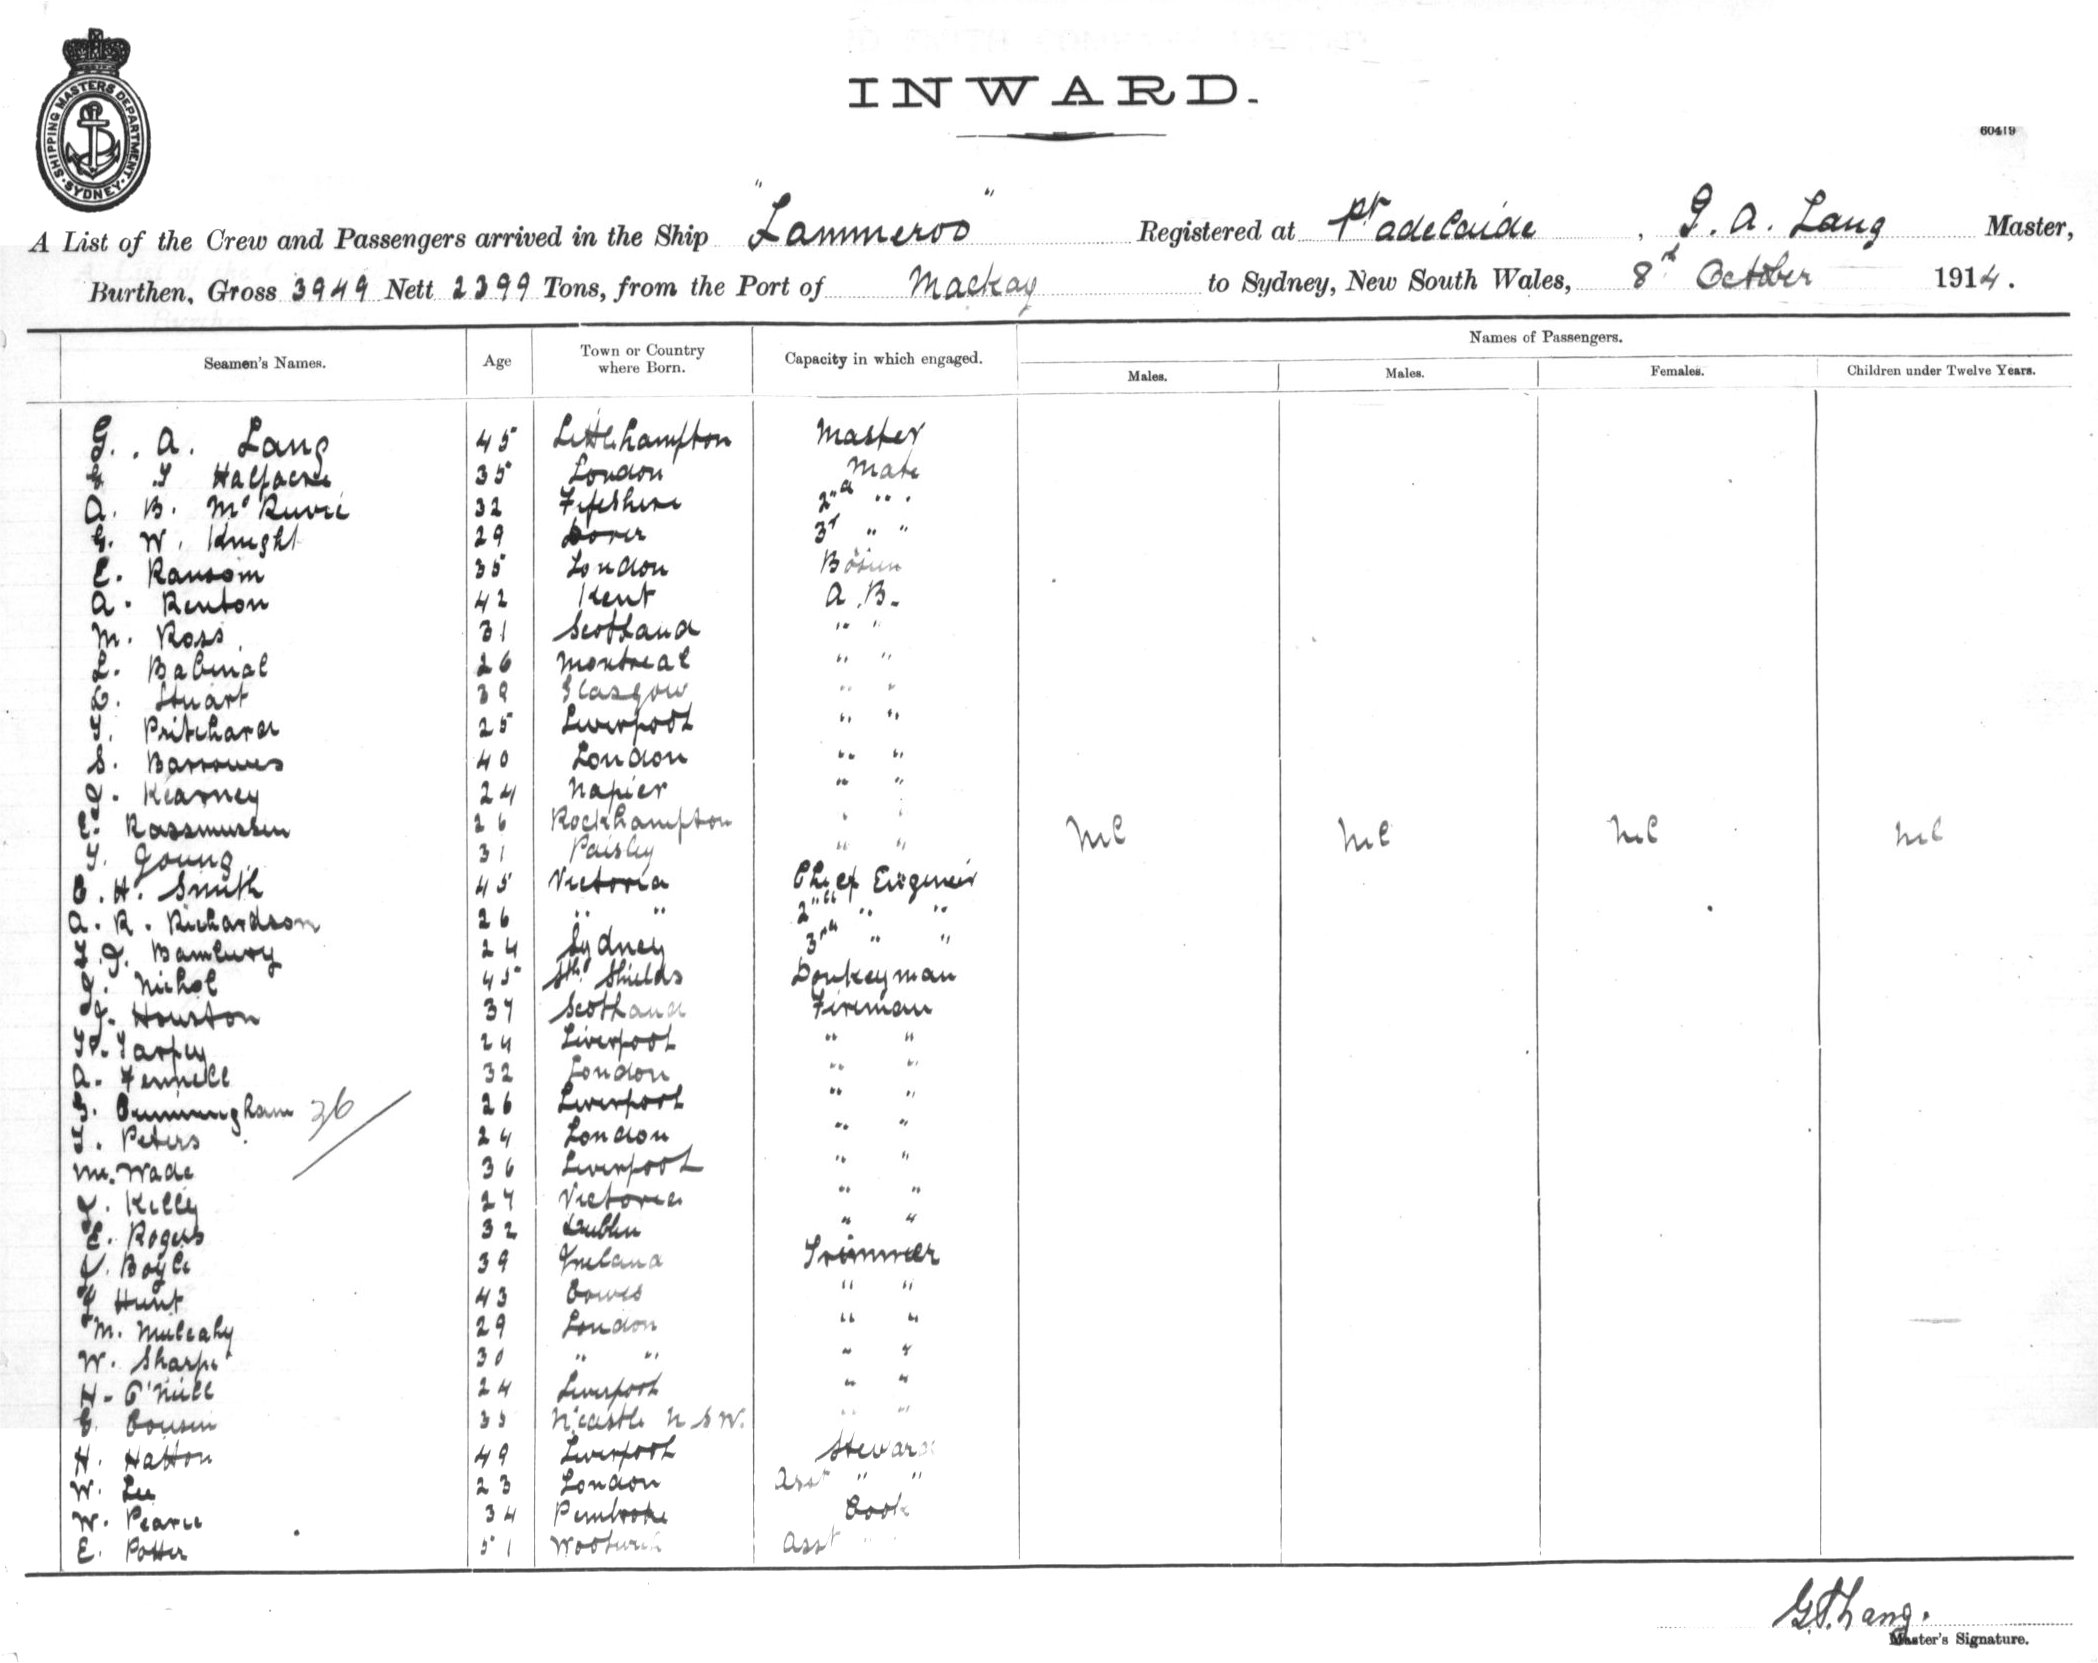 SHIPPING MASTERS DEPARTMENT. SYDNEY.
INWARD.
60419
A List of the Crew and Passengers arrived in the Ship "Lammeroo" Registered at Pt Adelaide, G. A. Lang Master,
Burthen, Gross 3949 Nett 2399 Tons, from the Port of Mackay to Sydney, New South Wales, 8th October 1914.
Seamen's Names. Age Town or Country where Born. Capacity in which engaged. Names of Passengers.
Males. Males. Females. Children under Twelve Years.
G. A. Lang 45 Littlehampton Master
Halfacre 35 London Mate
A. B. McRuvie 32 Fifeshire 2nd " "
G. W. Knight 29 Dover 3rd " "
E. Ransom 35 London Bosun
A. Renton 42 Kent A.B.
M. Ross 31 Scotland " "
L. 26 Montreal " "
E. Stuart 39 Glasgow " "
T. Pritchard 25 Liverpool " "
S. Barrowes 40 London " "
J. Kearney 24 Napier " "
E. Rassmussen 26 Rockhampton " "
T. Young 31 Paisley " "
Nil Nil Nil Nil
C. H. Smith 45 Victoria Chief Engineer
A. R. Richardson 26 " " 2nd " "
J. Bambury 24 Sydney 3rd " "
J. Nichol 45 Sth Shields Donkeyman
J. Houston 37 Scotland Fireman
Tarpey 24 Liverpool " "
A. Fennell 32 London " "
Cunningham 36 26 Liverpool " "
T. Peters 24 London " "
M. Wade 36 Liverpool " "
J. Kelly 27 Victoria " "
E. Rogers 32 Dublin " "
J. Boyle 39 Ireland Trimmer
Hunt 43 Cowes " "
M. Mulcahy 29 London " "
W. Sharpe 30 " " " "
H. O'Neill 24 Liverpool " "
Cousin 35 N'castle N S W. " "
H. Hatton 49 Liverpool Steward
W. Lee 23 London Asst " "
W. Pearce 34 Pembroke Cook
E. Potter 51 Woolwich Asst "
G. A. Lang.
Master's Signature.